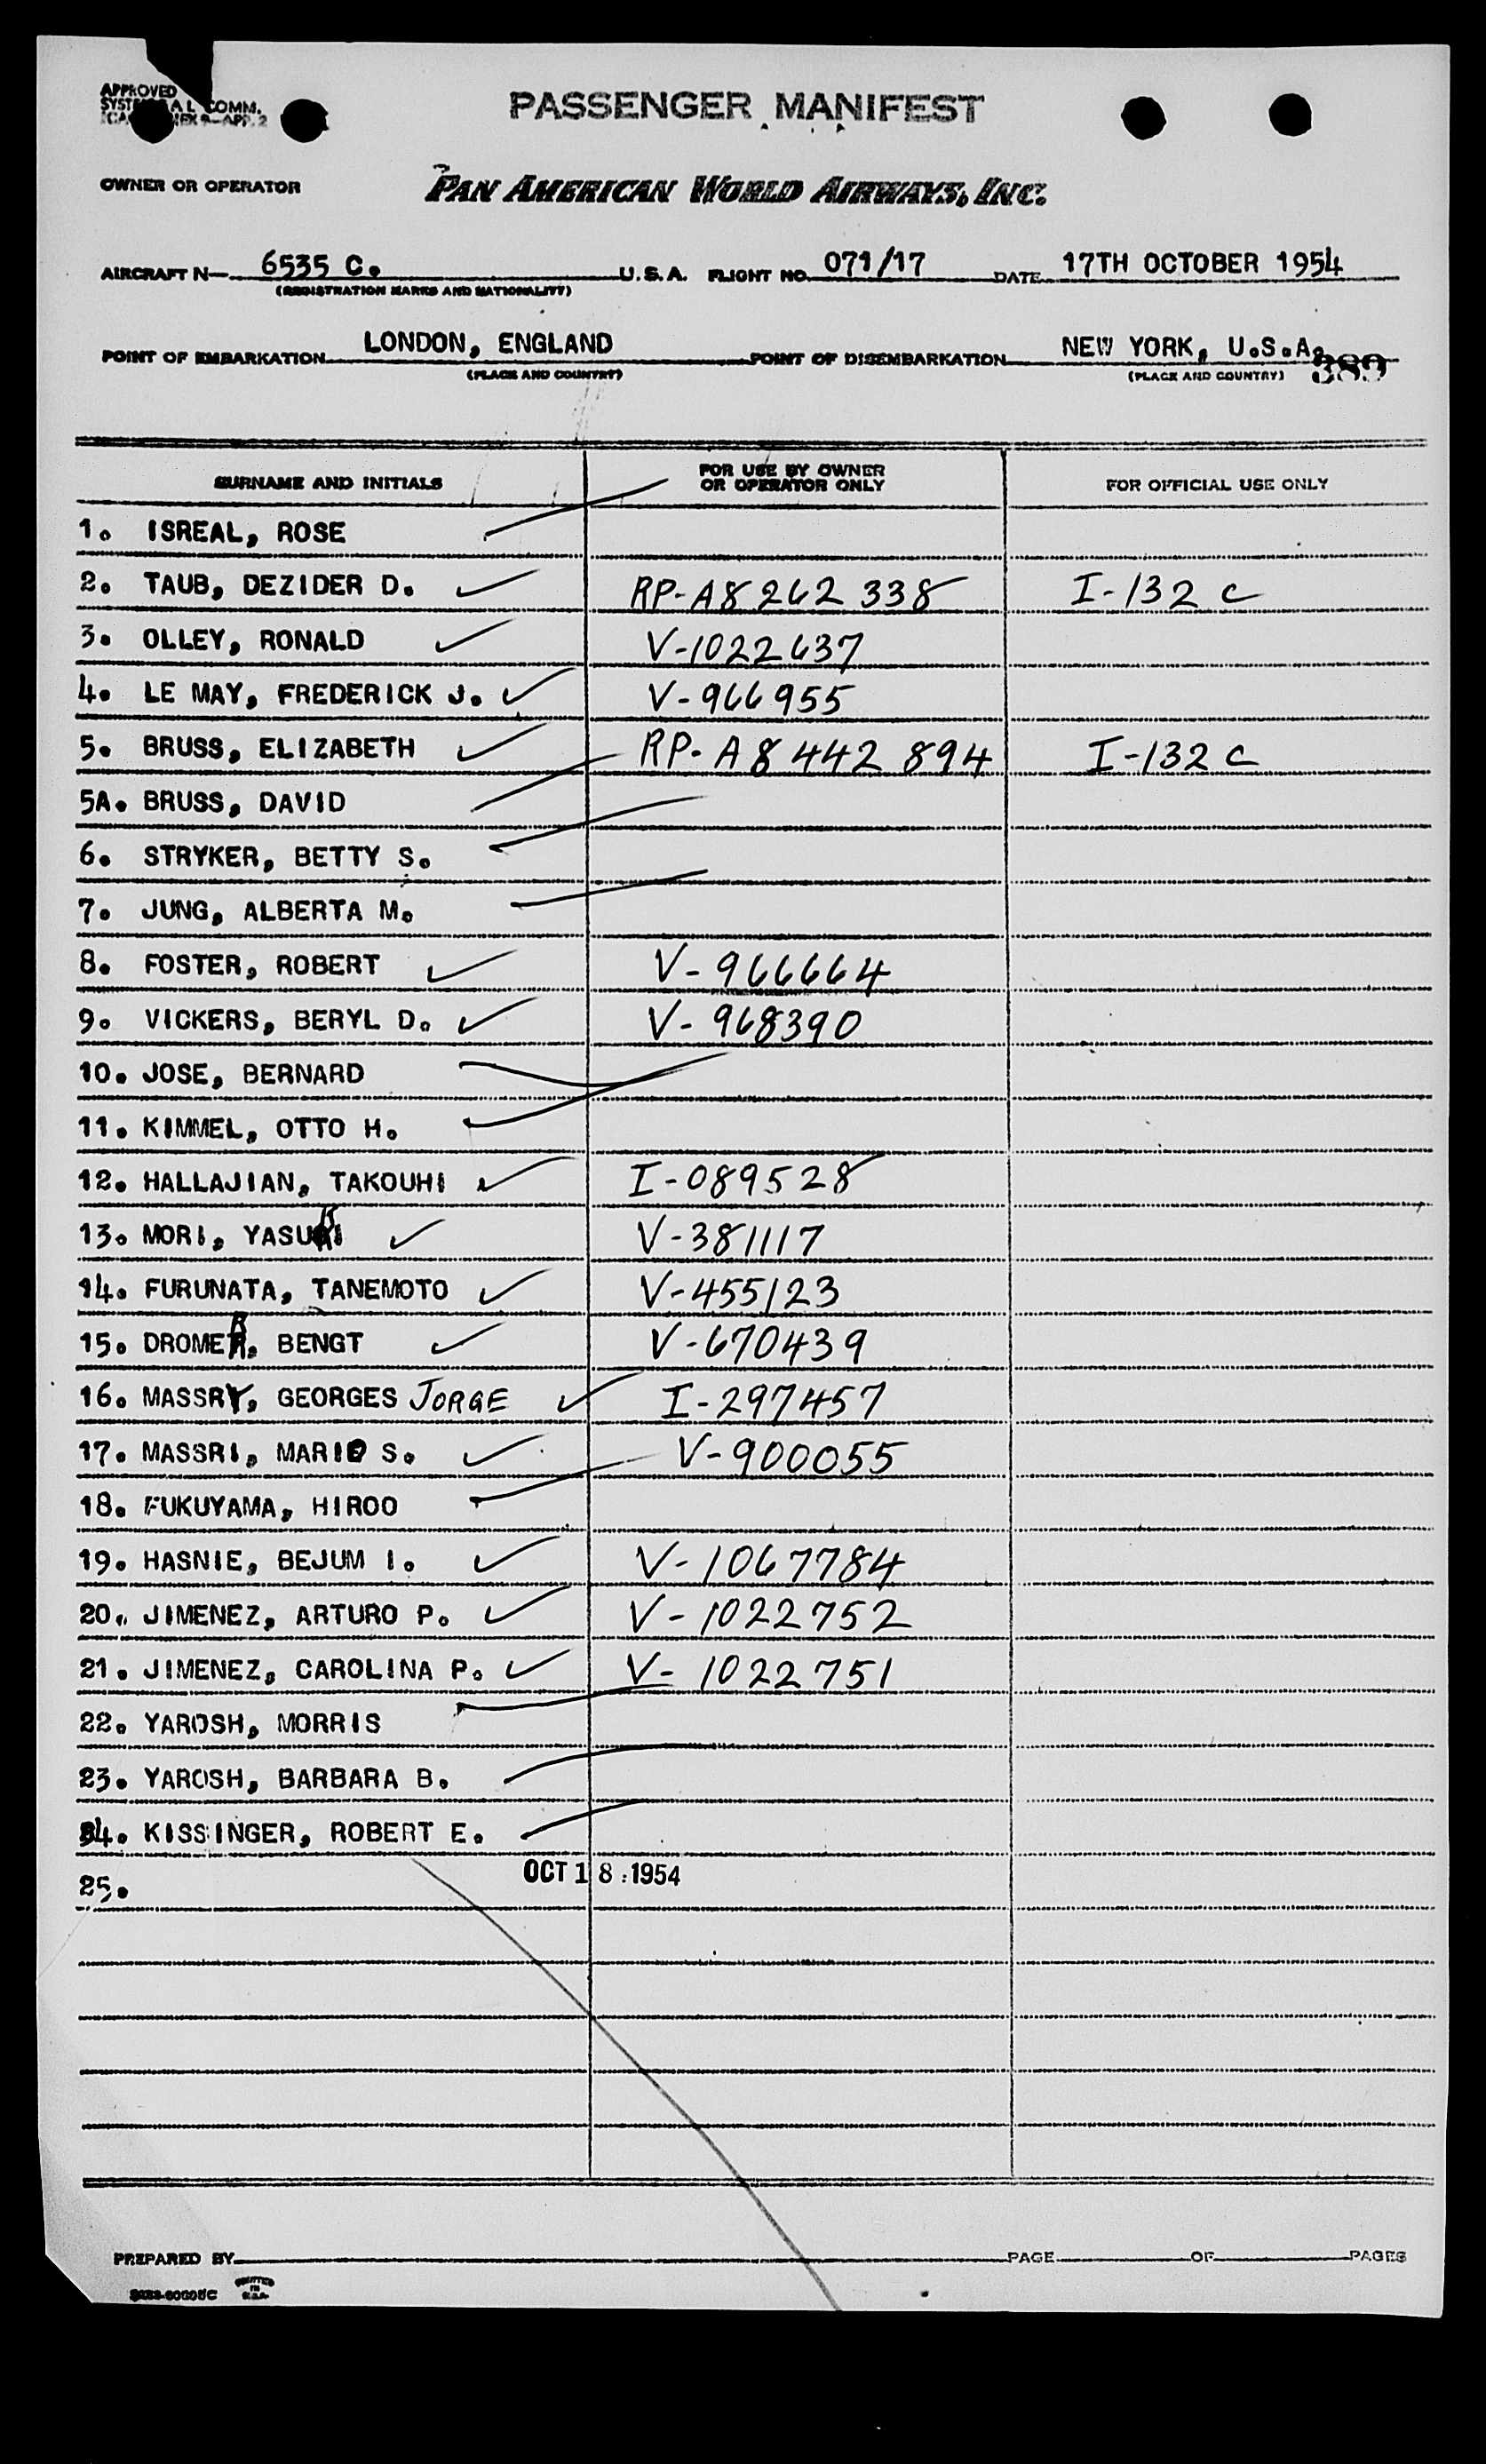 APPROVED
COMM.
APP. 2
PASSENGER MANIFEST
OWNER OR OPERATOR PAN AMERICAN WORLD AIRWAYS, INC.
AIRCRAFT N— 6535 C. U.S.A. FLIGHT NO. 071/17 DATE 17TH OCTOBER 1954
(REGISTRATION MARKS AND NATIONALITY)
POINT OF EMBARKATION LONDON, ENGLAND POINT OF DISEMBARKATION NEW YORK, U.S.A.
(PLACE AND COUNTRY) (PLACE AND COUNTRY) 389
SURNAME AND INITIALS FOR USE BY OWNER OR OPERATOR ONLY FOR OFFICIAL USE ONLY
1. ISREAL, ROSE
2. TAUB, DEZIDER D. RP-A8262338 I-132 C
3. OLLEY, RONALD V-1022637
4. LE MAY, FREDERICK J. V-966955
5. BRUSS, ELIZABETH RP-A8442894 I-132 C
5A. BRUSS, DAVID
6. STRYKER, BETTY S.
7. JUNG, ALBERTA M.
8. FOSTER, ROBERT V-966664
9. VICKERS, BERYL D. V-968390
10. JOSE, BERNARD
11. KIMMEL, OTTO H.
12. HALLAJIAN, TAKOUHI I-089528
13. MORI, V-381117
14. FURUNATA, TANEMOTO V-455123
15. DROMER, BENGT V-670439
16. MASSRY, GEORGES JORGE I-297457
17. MASSRI, MARIE S. V-900055
18. FUKUYAMA, HIROO
19. HASNIE, BEJUM I. V-1067784
20. JIMENEZ, ARTURO P. V-1022752
21. JIMENEZ, CAROLINA P. V-1022751
22. YAROSH, MORRIS
23. YAROSH, BARBARA B.
24. KISSINGER, ROBERT E.
OCT 18 1954
25.
PREPARED BY PAGE OF PAGES
PRINTED IN U.S.A.